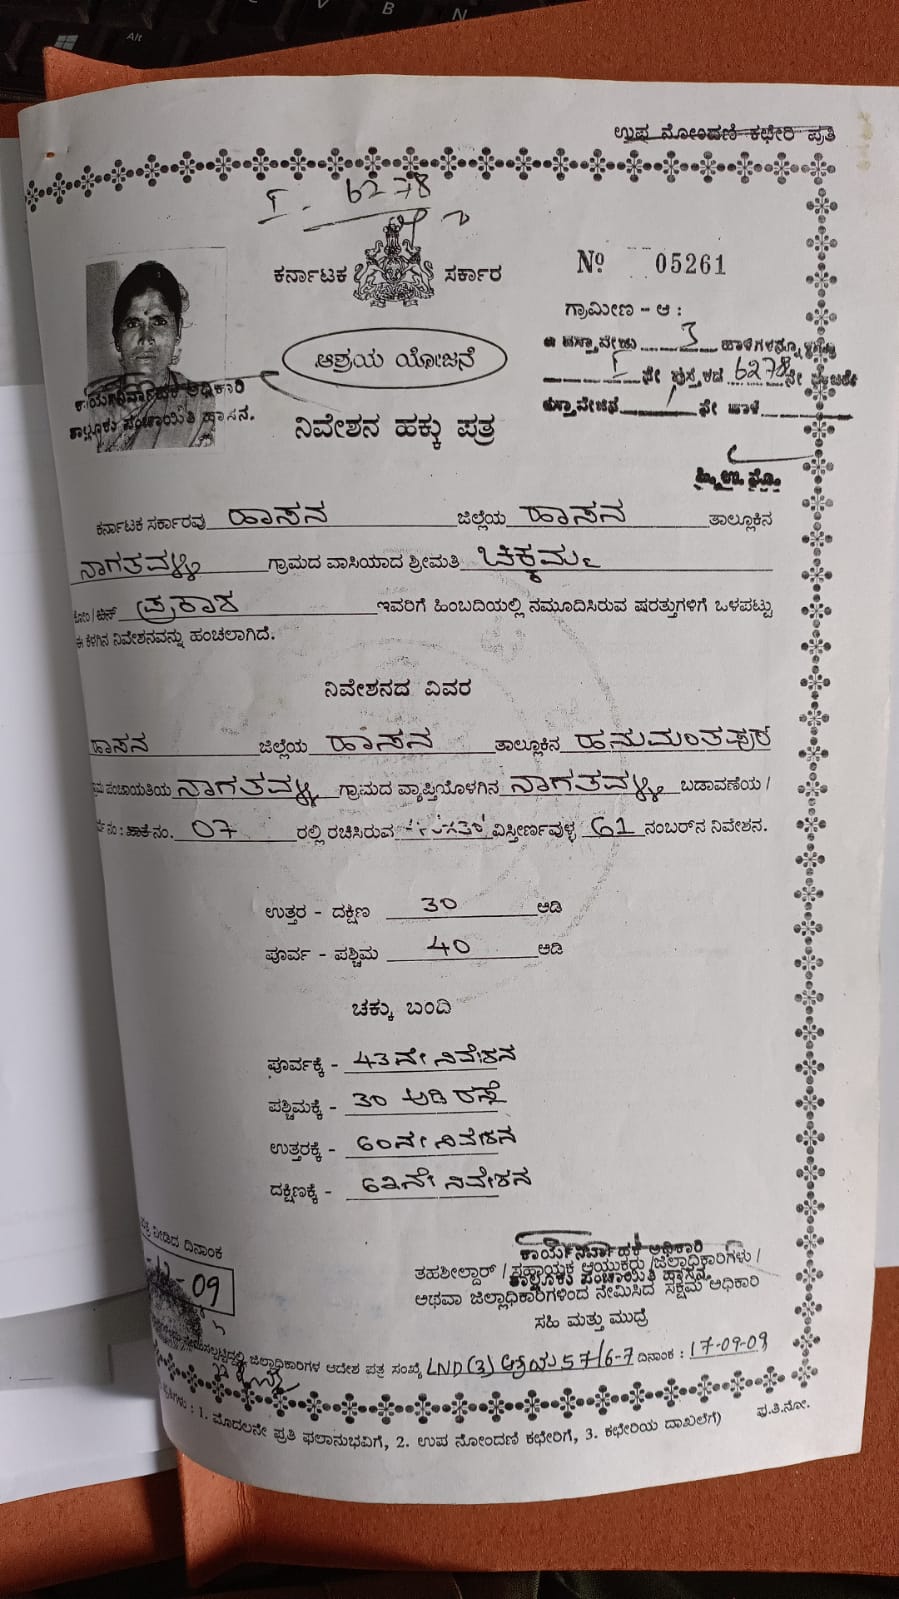 ಉಪ ನೋಂದಣಿ ಕಛೇರಿ ಪ್ರತಿ
I. 6278
ಕರ್ನಾಟಕ ಸರ್ಕಾರ
Nº 05261
ಗ್ರಾಮೀಣ - ಆ :
ಆಶ್ರಯ ಯೋಜನೆ
ಈ ದಸ್ತಾವೇಜು 3 ಹಾಳೆಗಳನ್ನೊಳಗೊಂಡಿದೆ
I ನೇ ಪುಸ್ತಕದ 6278 ನೇ ನಂಬರಿನ
ದಸ್ತಾವೇಜಿನ 1 ನೇ ಹಾಳೆ
ಕಾರ್ಯನಿರ್ವಾಹಕ ಅಧಿಕಾರಿ
ತಾಲ್ಲೂಕು ಪಂಚಾಯಿತಿ ಹಾಸನ.
ನಿವೇಶನ ಹಕ್ಕು ಪತ್ರ
ಕರ್ನಾಟಕ ಸರ್ಕಾರವು ಹಾಸನ ಜಿಲ್ಲೆಯ ಹಾಸನ ತಾಲ್ಲೂಕಿನ
ನಾಗತವಳ್ಳಿ ಗ್ರಾಮದ ವಾಸಿಯಾದ ಶ್ರೀಮತಿ ಚಿಕ್ಕಮ್ಮ
ಕೋಂ / ಬಿನ್ ಪ್ರಕಾಶ ಇವರಿಗೆ ಹಿಂಬದಿಯಲ್ಲಿ ನಮೂದಿಸಿರುವ ಷರತ್ತುಗಳಿಗೆ ಒಳಪಟ್ಟು
ಈ ಕೆಳಗಿನ ನಿವೇಶನವನ್ನು ಹಂಚಲಾಗಿದೆ.
ನಿವೇಶನದ ವಿವರ
ಹಾಸನ ಜಿಲ್ಲೆಯ ಹಾಸನ ತಾಲ್ಲೂಕಿನ ಹನುಮಂತಪುರ
ಪಂಚಾಯತಿಯ ನಾಗತವಳ್ಳಿ ಗ್ರಾಮದ ವ್ಯಾಪ್ತಿಯೊಳಗಿನ ನಾಗತವಳ್ಳಿ ಬಡಾವಣೆಯ /
ನಂ. 07 ರಲ್ಲಿ ರಚಿಸಿರುವ ವಿಸ್ತೀರ್ಣವುಳ್ಳ 61 ನಂಬರ್‌ನ ನಿವೇಶನ.
ಉತ್ತರ - ದಕ್ಷಿಣ 30 ಅಡಿ
ಪೂರ್ವ - ಪಶ್ಚಿಮ 40 ಅಡಿ
ಚಕ್ಕು ಬಂದಿ
ಪೂರ್ವಕ್ಕೆ - 43ನೇ ನಿವೇಶನ
ಪಶ್ಚಿಮಕ್ಕೆ - 30 ಅಡಿ ರಸ್ತೆ
ಉತ್ತರಕ್ಕೆ - 60ನೇ ನಿವೇಶನ
ದಕ್ಷಿಣಕ್ಕೆ - 62ನೇ ನಿವೇಶನ
ನೀಡಿದ ದಿನಾಂಕ
09
ಕಾರ್ಯನಿರ್ವಾಹಕ ಅಧಿಕಾರಿ
ತಹಶೀಲ್ದಾರ್ / ಸಹಾಯಕ ಆಯುಕ್ತರು / ಜಿಲ್ಲಾಧಿಕಾರಿಗಳು /
ತಾಲ್ಲೂಕು ಪಂಚಾಯಿತಿ ಹಾಸನ.
ಅಥವಾ ಜಿಲ್ಲಾಧಿಕಾರಿಗಳಿಂದ ನೇಮಿಸಿದ ಸಕ್ಷಮ ಅಧಿಕಾರಿ
ಸಹಿ ಮತ್ತು ಮುದ್ರೆ
ಜಿಲ್ಲಾಧಿಕಾರಿಗಳ ಆದೇಶ ಪತ್ರ ಸಂಖ್ಯೆ LND (3) ಆಶ್ರಯ 57/6-7 ದಿನಾಂಕ : 17-09-09
1. ಮೊದಲನೇ ಪ್ರತಿ ಫಲಾನುಭವಿಗೆ, 2. ಉಪ ನೋಂದಣಿ ಕಛೇರಿಗೆ, 3. ಕಛೇರಿಯ ದಾಖಲೆಗೆ) ಪ.ತಿ.ನೋ.